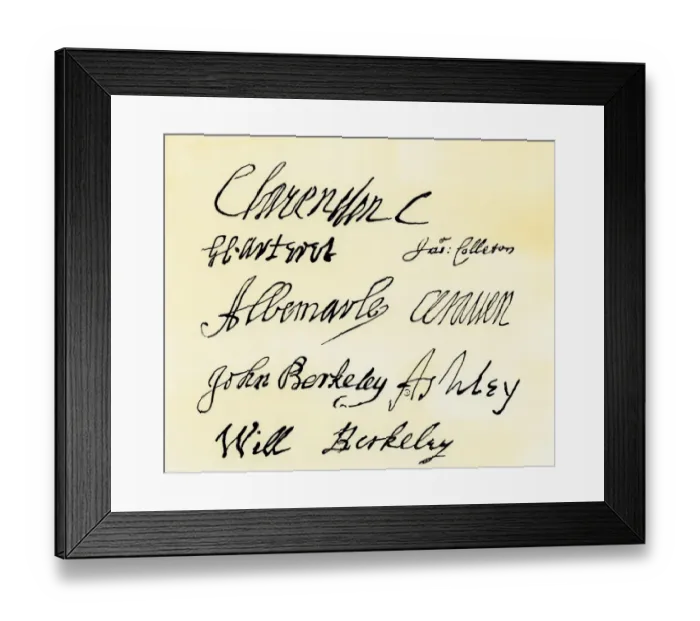 Clarendon C
G. Carteret Jas: Colleton
Albemarle craven
John Berkeley Ashley
Will Berkeley